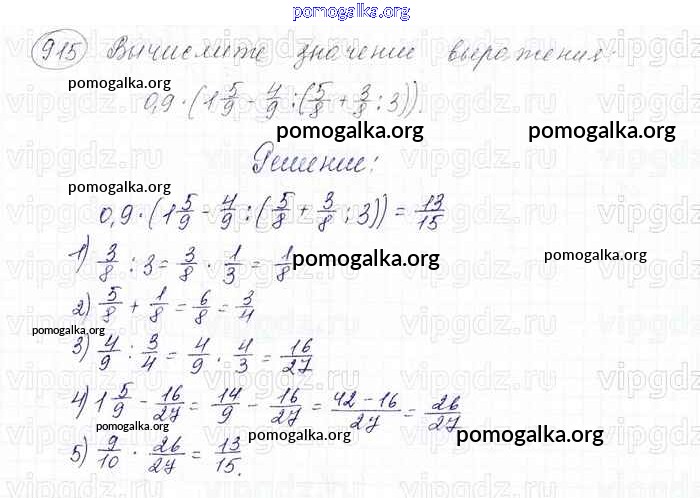 pomogalka.org
915 Вычислите значение выражения:
pomogalka.org
0,9 · (1 5/9 - 4/9 : (5/8 + 3/8 : 3)).
pomogalka.org pomogalka.org
Решение:
pomogalka.org
0,9 · (1 5/9 - 4/9 : (5/8 + 3/8 : 3)) = 13/15
1) 3/8 : 3 = 3/8 · 1/3 = 1/8
pomogalka.org pomogalka.org
2) 5/8 + 1/8 = 6/8 = 3/4
pomogalka.org
3) 4/9 : 3/4 = 4/9 · 4/3 = 16/27
pomogalka.org
4) 1 5/9 - 16/27 = 14/9 - 16/27 = 42-16/27 = 26/27
pomogalka.org pomogalka.org
5) 9/10 · 26/27 = 13/15.
pomogalka.org
vipgdz.ru